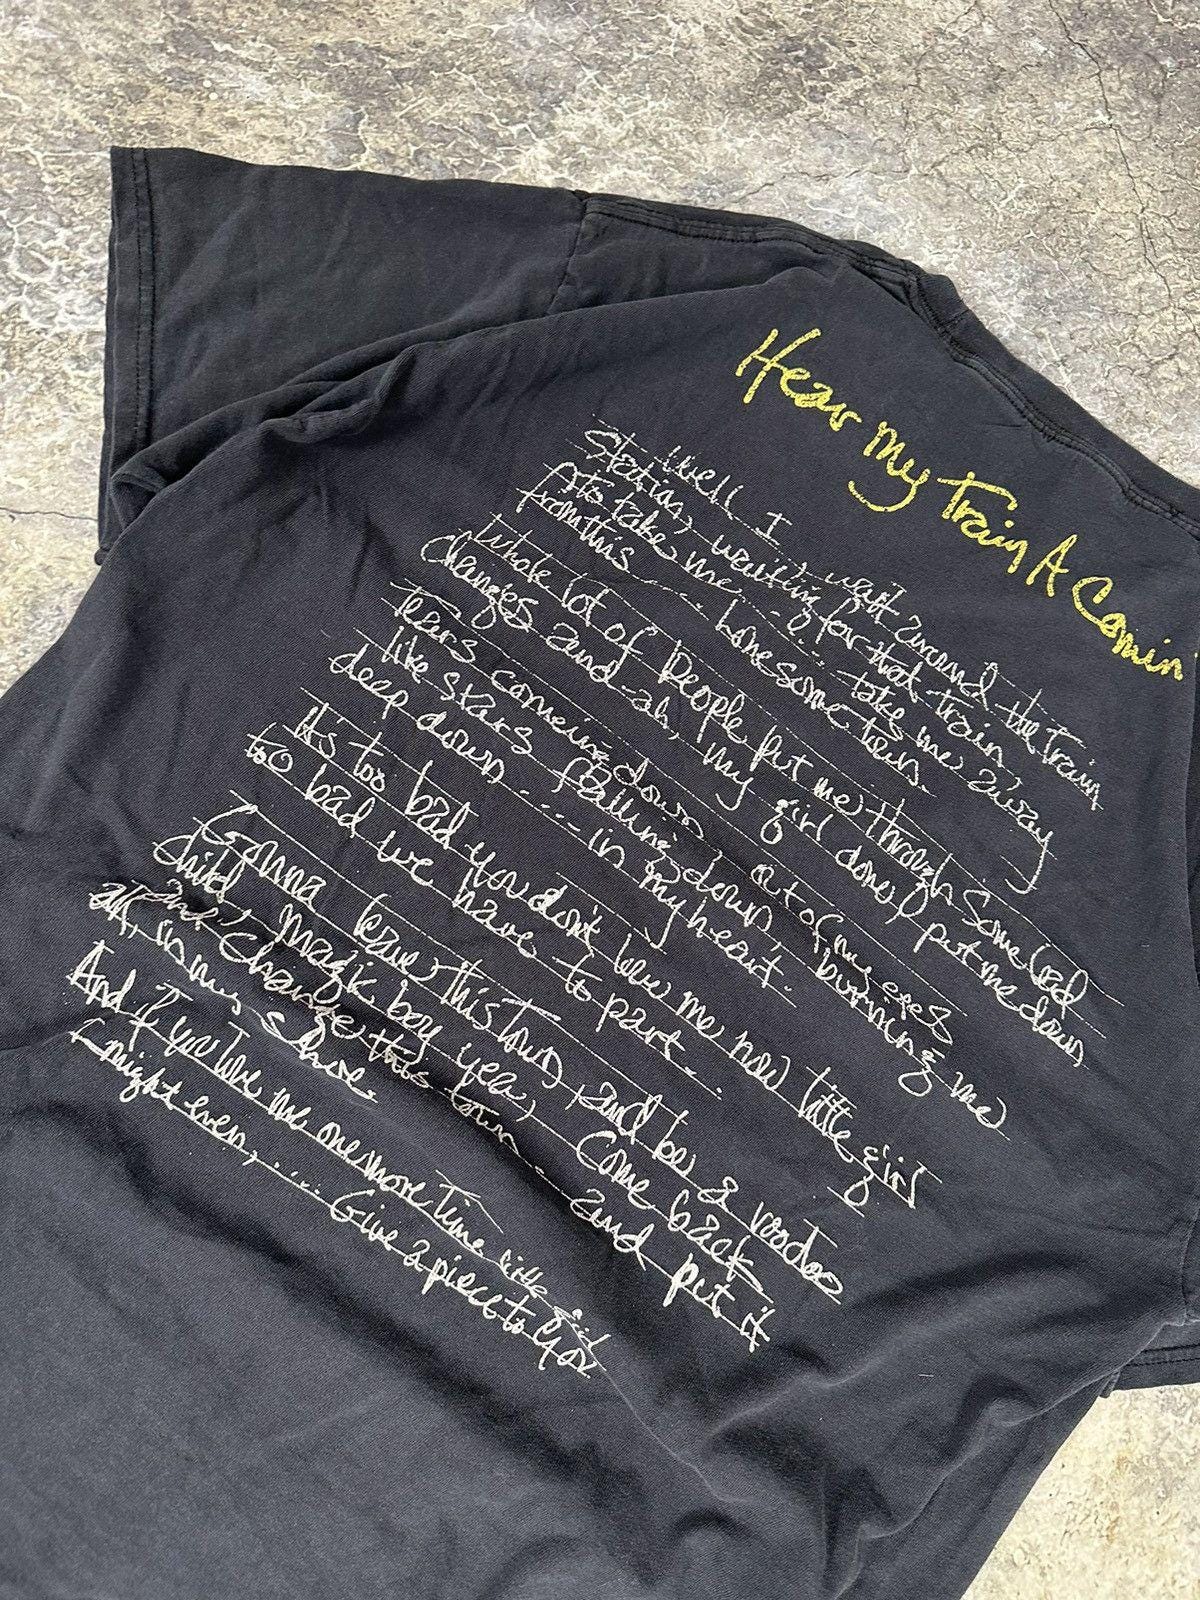 Hear My Train A Comin'
Well I wait around the train
Station, waiting for that train
to take me ..... take me away
from this ..... lonesome town
Whole lot of People put me through some
changes and-ah, my girl done put me down
Tears coming down out of my eyes
like stars falling down burning me
deep down ..... in my heart.
It's too bad you don't love me now little girl
too bad we have to part...
Gonna leave this town, and be a voodoo
child magic boy yea, Come back
and change this town - and put it
all, in my shoe.
And if you love me one more Time little girl
might even, ..... Give a piece to you